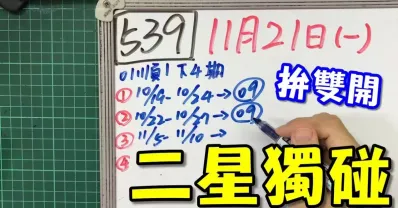 539 11月21日(一)
順1下4期
拚雙開
① 10/19- 10/24→09
② 10/22- 10/27→09
③ 11/5- 11/10→
④
二星獨碰